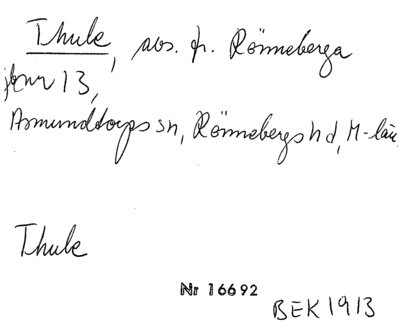 Thule, avs. fr. Rönneberga
jknr 13,
Asmundtorps sn, Rönnebergs hd, M-län
Thule
Nr 16692
BEK 1913